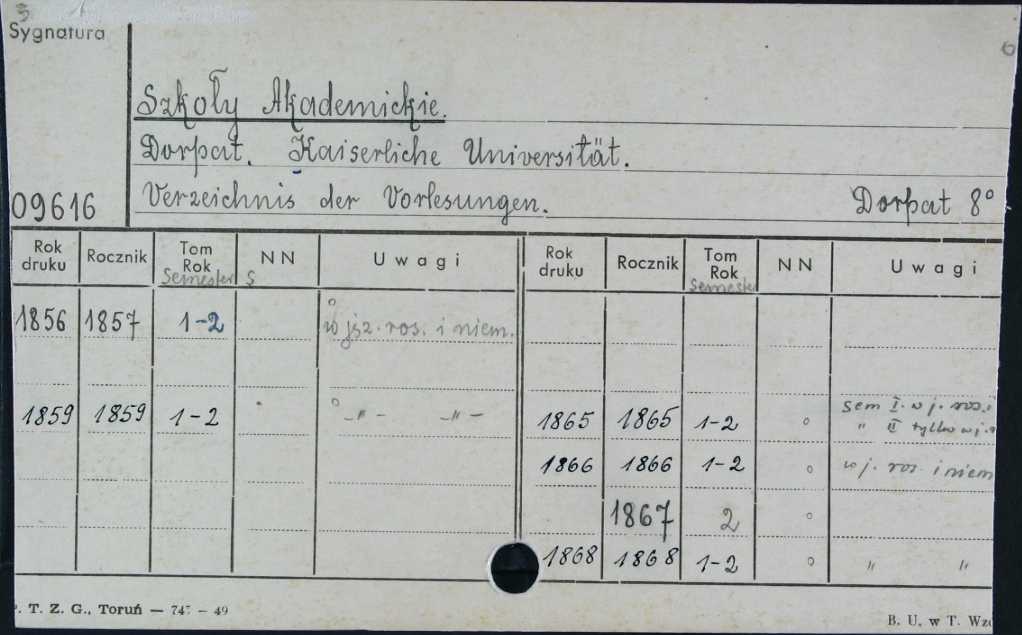 Sygnatura
Szkoły Akademickie.
Dorpat. Kaiserliche Universität.
09616 Verzeichnis der Vorlesungen. Dorpat 8°
Rok druku Rocznik Tom Rok Semester NN Uwagi Rok druku Rocznik Tom Rok Semester NN Uwagi
1856 1857 1-2 w jęz. ros. i niem.
1859 1859 1-2 -„- -„- 1865 1865 1-2 sem I. w j. ros. i
„ II tylko w j.
1866 1866 1-2 w j. ros. i niem
1867 2
1868 1868 1-2 „ „
. T. Z. G., Toruń — 747 — 49 B. U. w T. Wzó